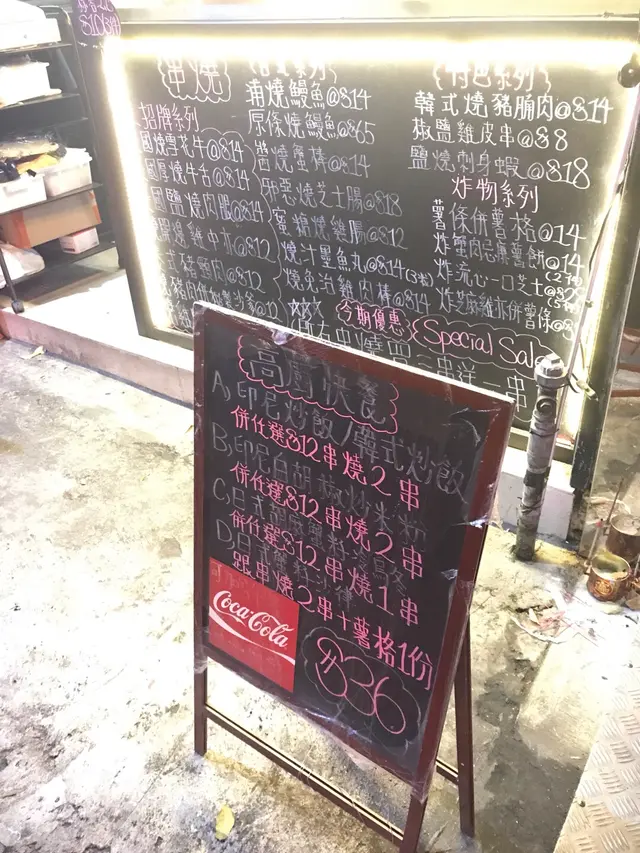 串燒
招牌系列
國燒雪花牛@$14
國厚燒牛舌@$14
國鹽燒肉眼@$14
雞中亦@$12
式豬頸肉@$12
系列
蒲燒鰻魚@$14
原條燒鰻魚@$65
醬燒蟹棒@$14
邪惡燒芝士腸@$18
蜜糖燒雞腸@$12
燒汁墨魚丸@$14(3粒)
燒免治雞肉棒@$14
特色系列
韓式燒豬腩肉@$14
椒鹽雞皮串@$8
鹽燒刺身蝦@$18
炸物系列
薯條併薯格@$14
炸蟹肉忌廉薯餅@$14
炸流心一口芝士
炸芝麻雞亦併薯條
今期優惠 Special Sale
串燒四串送一串
快餐
A)印尼炒飯/韓式炒飯
併任選$12串燒2串
B)印尼白胡椒炒米粉
併任選$12串燒2串
C)日式
併任選$12串燒1串
D)日式
跟串燒2串+薯格1份
Coca-Cola
$36